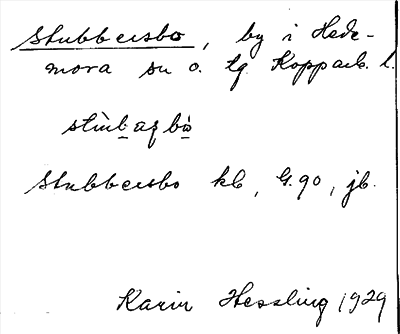 Stubbersbo, by i Hede-
mora sn o. tg. Kopparb. l.
Stubbersbo kb, G.90, jb.
Karin Hessling 1929